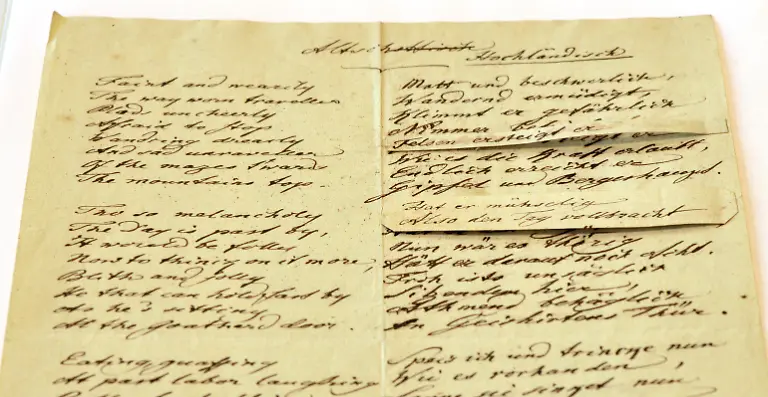 Altschottisch Hochländisch
Faint and wearily
The way worn traveller
Plods uncheerly
Afraid to stop
Wandring drearly
And sad unraveller
Of the mazes t'ward
The mountains top.
Tho so melancholy
The day is past by,
It would be folly
Now to think on it more,
Blith and jolly
He that can hold fast by
As he's sitting
At the goatherd door.
Eating, quaffing
At past labor laughing
Matt und beschwerlich,
Wandernd ermüdigt,
Klimmt er gefährlich
Nimmer
Felsen ersteigt er
Wie es die Kraft erlaubt,
Endlich erreicht er
Gipfel und Bergeshaupt.
Hat er mühselig
Also den Tag vollbracht
Nun wär es thörig
Hätt er darauf noch Acht.
Froh ists unsäglich
Sitzendem hier,
Athmend behäglich
An Geishirtens Thür.
Speis ich und trincke nun
Wie es vorhanden,
Sonne sie sinket nun